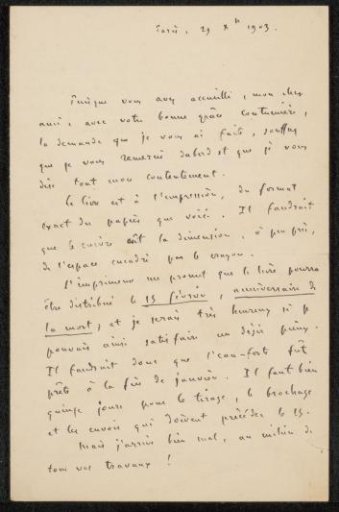 Paris, 29 Xbre 1903.
Puisque vous avez accueilli, mon cher
ami, avec votre bonne grâce coutumière,
la demande que je vous ai faite, souffrez
que je vous remercie d'abord et que je vous
dise tout mon contentement.
Le livre est à l'impression, du format
exact du papier que voici. Il faudrait
que le cuivre eût la dimension, à peu près,
de l'espace encadré par le crayon.
L'imprimeur me promet que le livre pourra
être distribué le 15 février, anniversaire de
la mort, et je serais très heureux si je
pouvais ainsi satisfaire un désir pieux.
Il faudrait donc que l'eau-forte fût
prête à la fin de janvier. Il faut bien
quinze jours pour le tirage, le brochage
et les envois qui doivent précéder le 15.
Mais j'arrive bien mal, au milieu de
tous vos travaux !